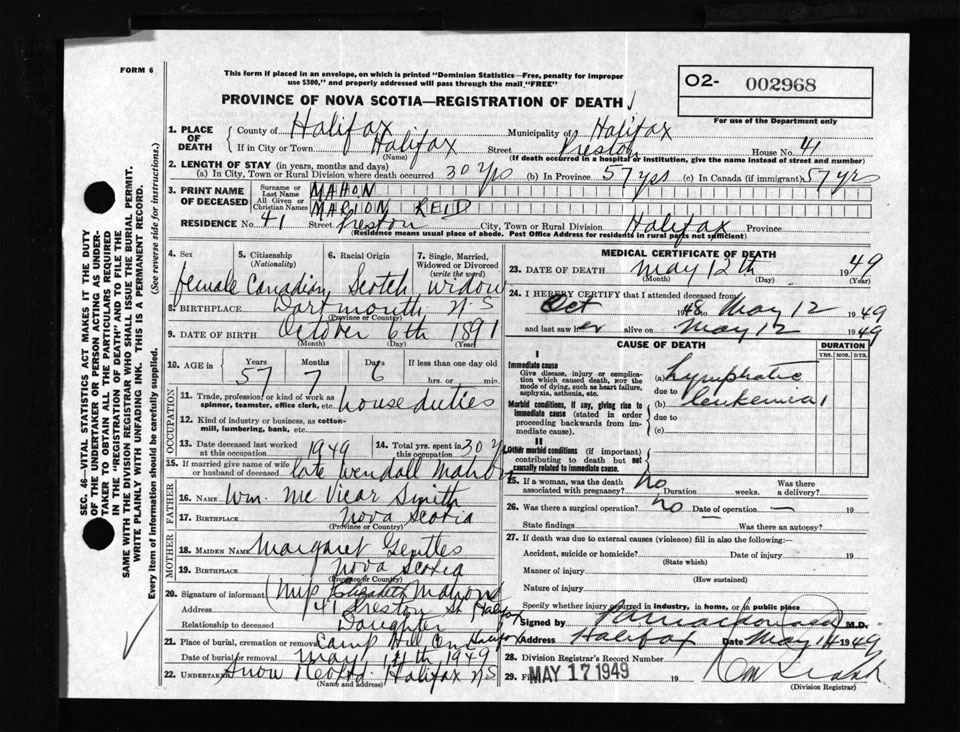 FORM 6
This form if placed in an envelope, on which is printed "Dominion Statistics—Free, penalty for improper
use $300," and properly addressed will pass through the mail "FREE"
O2- 002968
For use of the Department only
PROVINCE OF NOVA SCOTIA—REGISTRATION OF DEATH
1. PLACE OF DEATH County of Halifax Municipality of Halifax
If in City or Town Halifax Street Preston House No. 41
(Name) (If death occurred in a hospital or institution, give the name instead of street and number)
2. LENGTH OF STAY (in years, months and days)
(a) In City, Town or Rural Division where death occurred 30 yrs (b) In Province 57 yrs (c) In Canada (if immigrant) 57 yrs
3. PRINT NAME OF DECEASED Surname or Last Name MAHON
All Given or Christian Names MARION REID
RESIDENCE No. 41 Street Preston City, Town or Rural Division Halifax Province
(Residence means usual place of abode. Post Office Address for residents in rural parts not sufficient)
4. Sex 5. Citizenship (Nationality) 6. Racial Origin 7. Single, Married, Widowed or Divorced (write the word)
female Canadian Scotch widow
8. BIRTHPLACE Dartmouth N.S
(Province or Country)
9. DATE OF BIRTH October 6th 1891
(Month) (Day) (Year)
10. AGE in Years Months Days If less than one day old
57 7 6 hrs. or min.
OCCUPATION
11. Trade, profession or kind of work as spinner, teamster, office clerk, etc. house duties
12. Kind of industry or business, as cotton-mill, lumbering, bank, etc.
13. Date deceased last worked at this occupation 1949 14. Total yrs. spent in this occupation 30 y
15. If married give name of wife or husband of deceased late Wendall Mahon
FATHER
16. NAME Wm. Mc Vicar Smith
17. BIRTHPLACE Nova Scotia
(Province or Country)
MOTHER
18. MAIDEN NAME Margaret Gentles
19. BIRTHPLACE Nova Scotia
(Province or Country)
20. Signature of informant Elizabeth Mahon
Address 41 Preston St Halifax
Relationship to deceased Daughter
21. Place of burial, cremation or removal Camp Hill Cem Halifax
Date of burial or removal May 14th 1949
22. UNDERTAKER Snow Halifax N S
(Name and address)
MEDICAL CERTIFICATE OF DEATH
23. DATE OF DEATH May 12th 1949
(Month) (Day) (Year)
24. I HEREBY CERTIFY that I attended deceased from
Oct 1948 to May 12 1949
and last saw her alive on May 12 1949
CAUSE OF DEATH DURATION
YRS. MOS. DYS.
I
Immediate cause
Give disease, injury or complication which caused death, NOT the mode of dying, such as heart failure, asphyxia, asthenia, etc.
(a) Lymphatic
due to
Morbid conditions, if any, giving rise to immediate cause (stated in order proceeding backwards from immediate cause).
(b) leukemia
due to
(c)
II
Other morbid conditions (if important) contributing to death but not causally related to immediate cause.
25. If a woman, was the death associated with pregnancy? no Duration weeks. Was there a delivery?
26. Was there a surgical operation? no Date of operation — 19
State findings — Was there an autopsy?
27. If death was due to external causes (violence) fill in also the following:—
Accident, suicide or homicide? Date of injury 19
(State which)
Manner of injury
(How sustained)
Nature of injury
Specify whether injury occurred in industry, in home, or in public place
Signed by M.D.
Address Halifax Date May 14 1949
28. Division Registrar's Record Number
29. MAY 17 1949 19
(Division Registrar)
SEC. 46—VITAL STATISTICS ACT MAKES IT THE DUTY
OF THE UNDERTAKER OR PERSON ACTING AS UNDER-
TAKER TO OBTAIN ALL THE PARTICULARS REQUIRED
IN THE "REGISTRATION OF DEATH" AND TO FILE THE
SAME WITH THE DIVISION REGISTRAR WHO SHALL ISSUE THE BURIAL PERMIT.
WRITE PLAINLY WITH UNFADING INK. THIS IS A PERMANENT RECORD.
Every item of information should be carefully supplied. (See reverse side for instructions.)